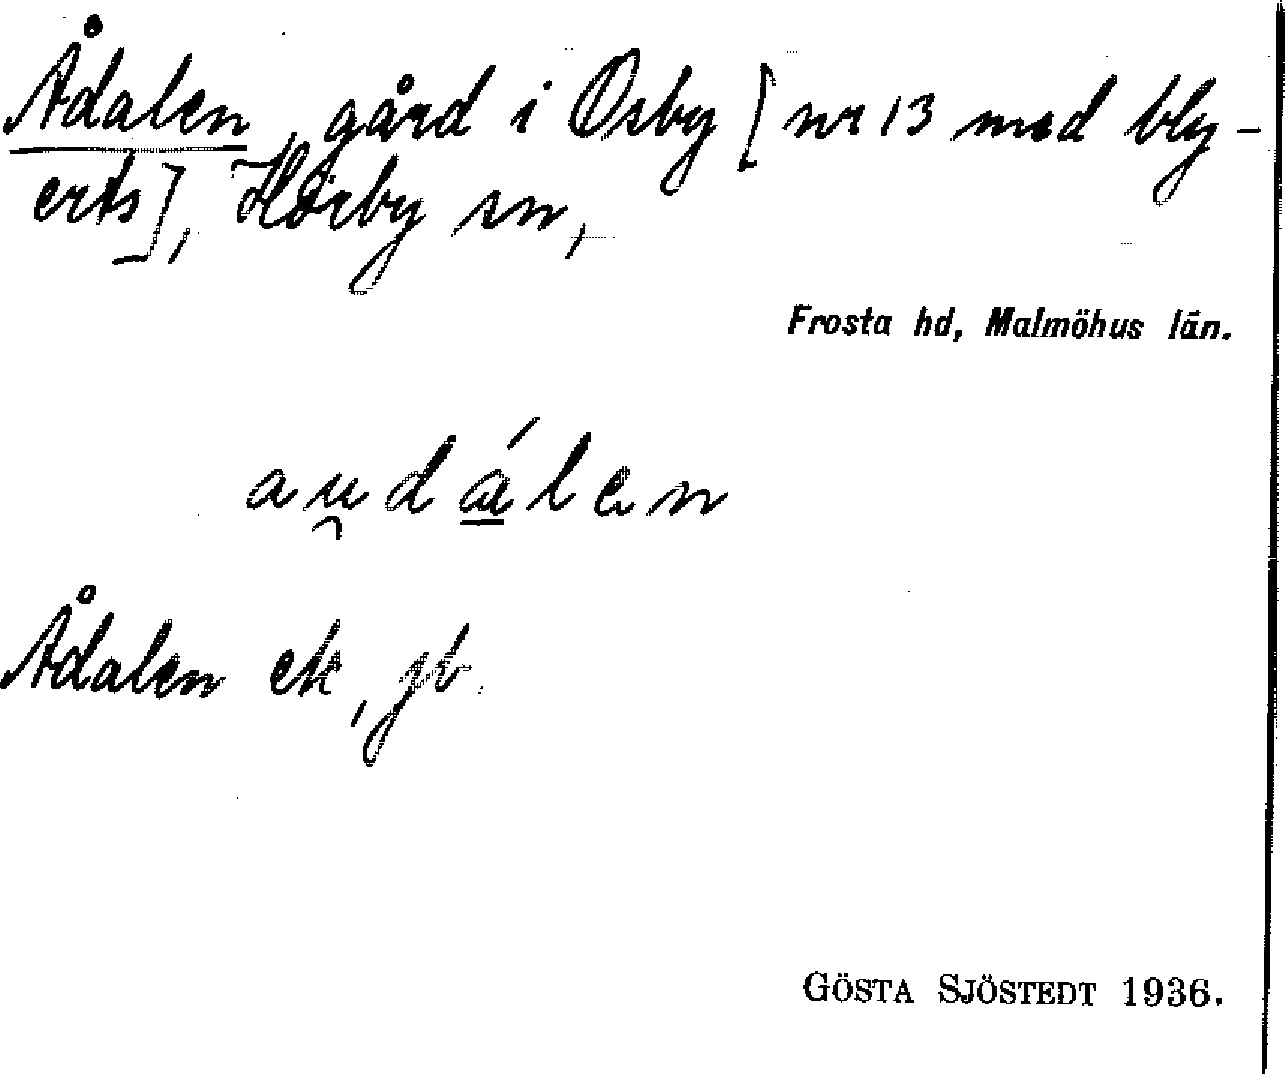 Ådalen, gård i Osby [nr 13 med bly-
erts], Hörby sn,
Frosta hd, Malmöhus län.
au̯dá̱len
Ådalen ek, jb.
GÖSTA SJÖSTEDT 1936.